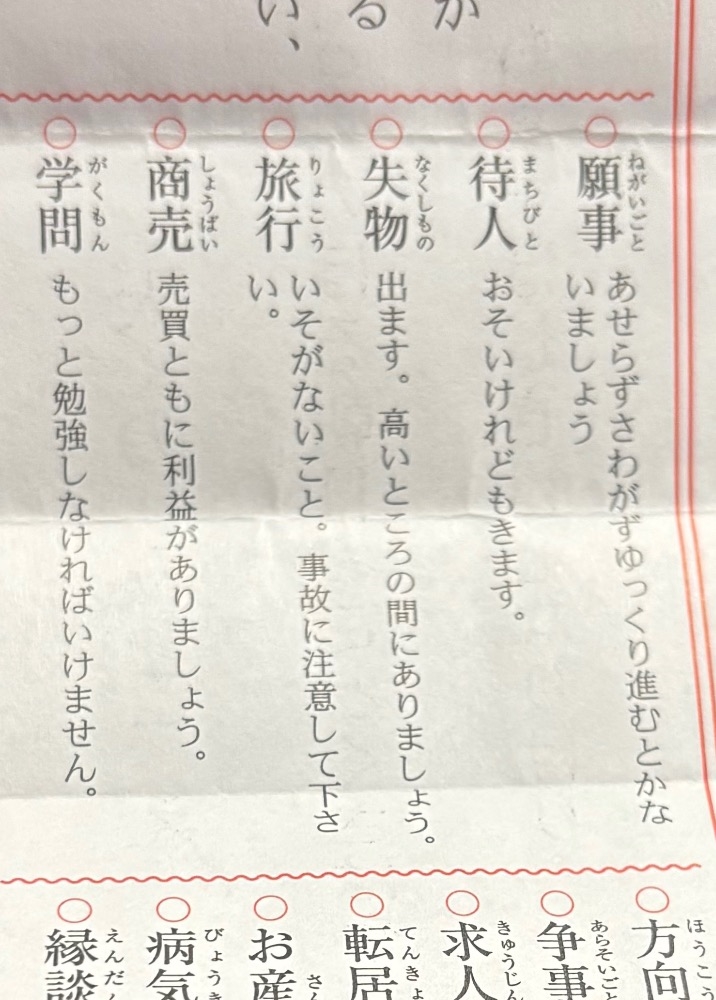 か
る
い、
○願事 あせらずさわがずゆっくり進むとかな
いましょう
○待人 おそいけれどもきます。
○失物 出ます。高いところの間にありましょう。
○旅行 いそがないこと。事故に注意して下さ
い。
○商売 売買ともに利益がありましょう。
○学問 もっと勉強しなければいけません。
○方向
○争事
○求人
○転居
○お産
○病気
○縁談
ねがいごと
まちびと
なくしもの
りょこう
しょうばい
がくもん
ほうこう
あらそいごと
きゅうじん
てんきょ
さん
びょうき
えんだん